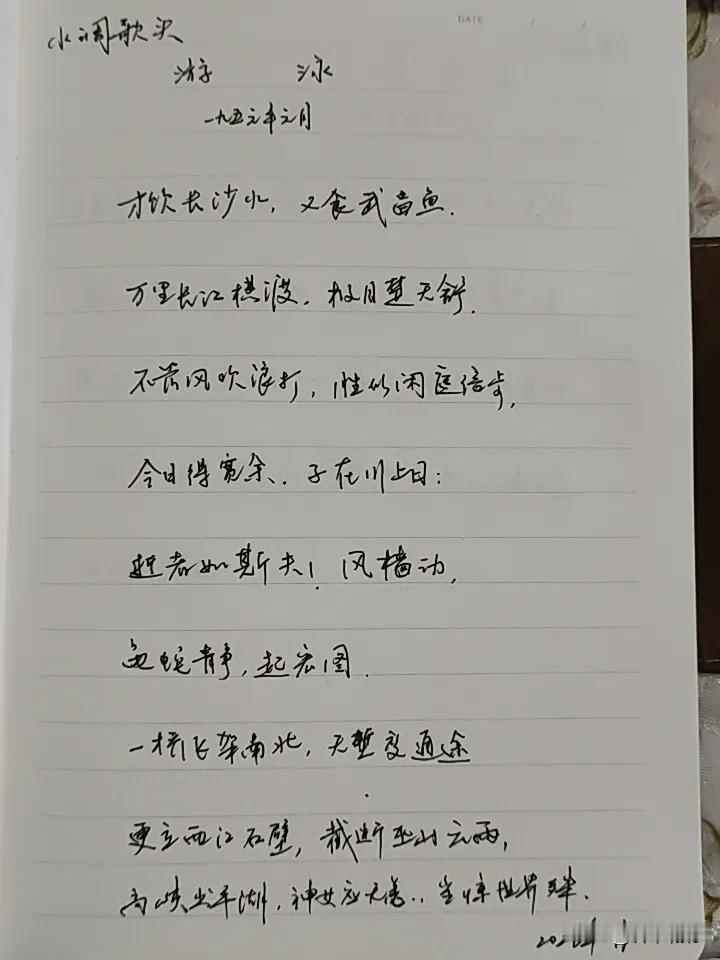 DATE / /
水调歌头
游 泳
一九五六年六月
才饮长沙水，又食武昌鱼.
万里长江横渡，极目楚天舒.
不管风吹浪打，胜似闲庭信步，
今日得宽余. 子在川上曰：
逝者如斯夫！风樯动，
龟蛇静，起宏图.
一桥飞架南北，天堑变通途
更立西江石壁，截断巫山云雨，
高峡出平湖. 神女应无恙.. 当惊世界殊.